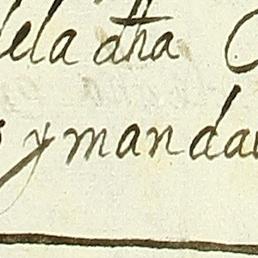 dela dha
y manda